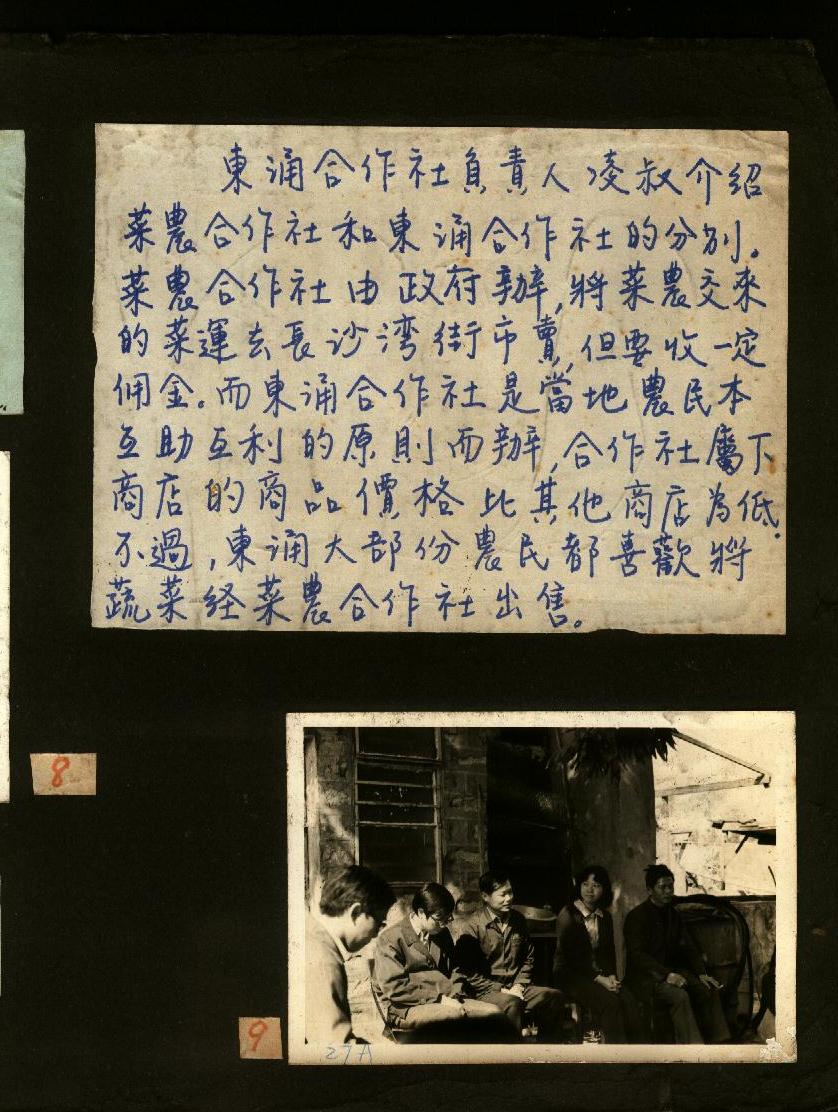 東涌合作社負責人凌叔介紹
菜農合作社和東涌合作社的分別。
菜農合作社由政府辦,將菜農交來
的菜運去長沙湾街市賣,但要收一定
佣金。而東涌合作社是當地農民本
互助互利的原則而辦,合作社屬下
商店的商品價格比其他商店為低.
不過,東涌大部份農民都喜歡將
蔬菜経菜農合作社出售。
8
9
27A